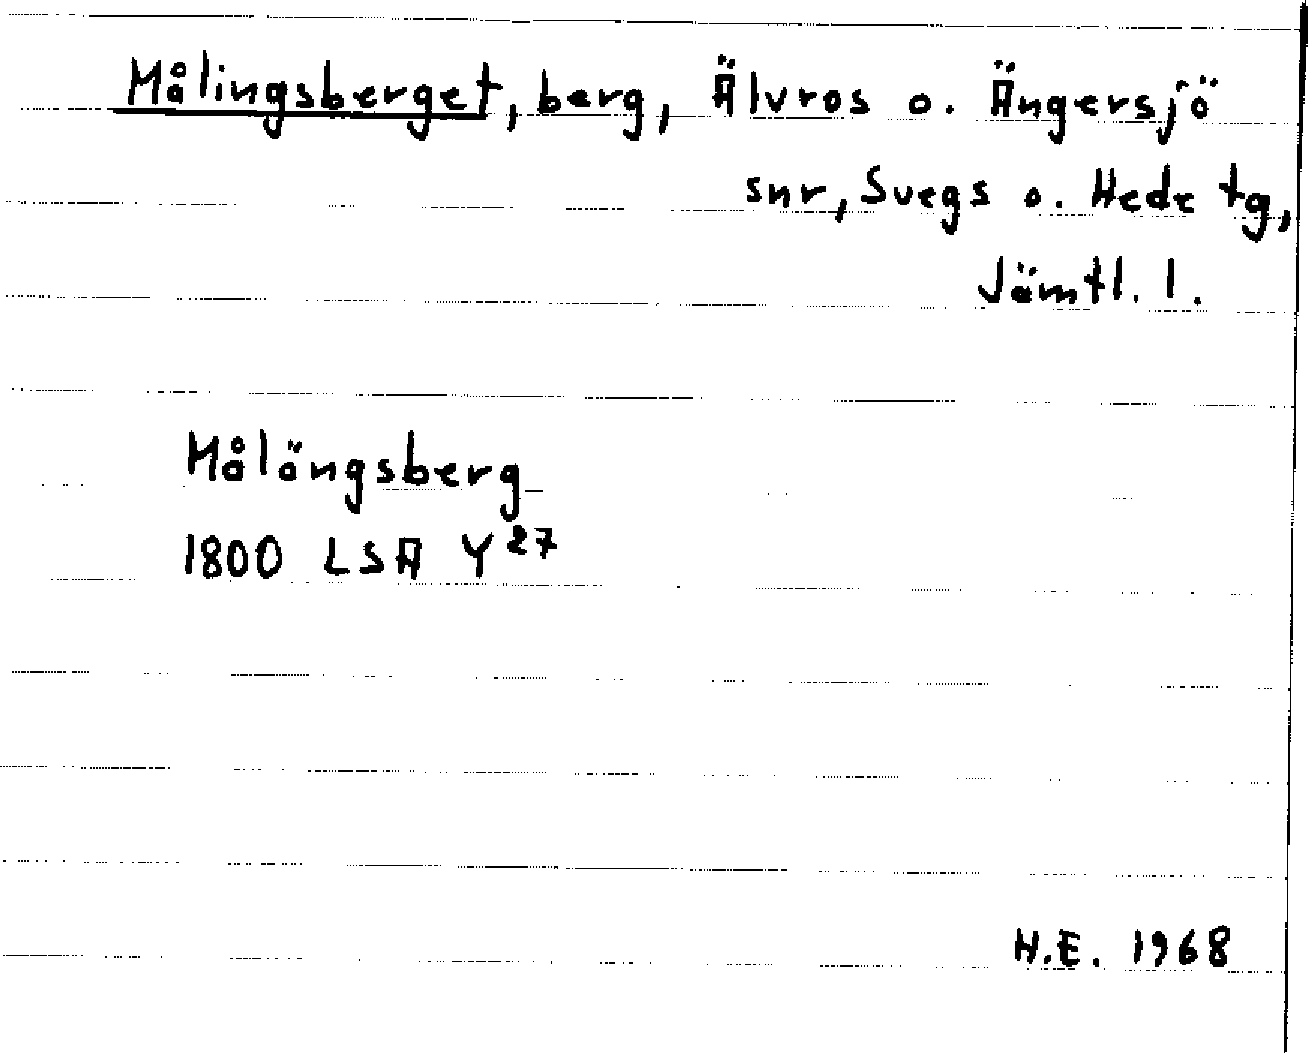 Målingsberget, berg, Älvros o. Ängersjö
snr, Svegs o. Hede tg,
Jämtl. l.
Målängsberg
1800 LSA Y27
H.E. 1968